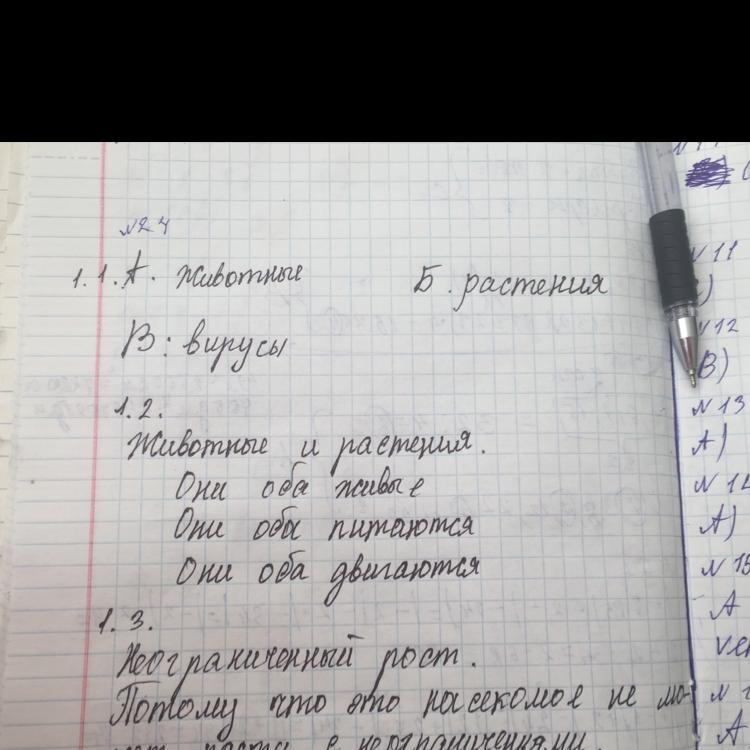 №24
1.1. А. Животные Б. растения
В: вирусы
1.2.
Животные и растения.
Они оба живые
Они оба питаются
Они оба двигаются
1.3.
Неограниченный рост.
Потому что это насекомое не мо-
жет расти с неограниченными
№11
№12
В)
№13
А)
№14
А)
№15
А
А